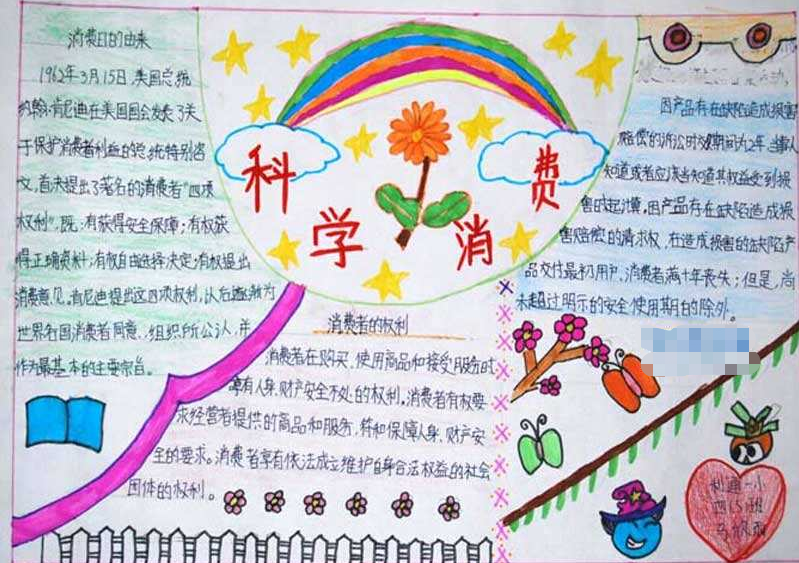 消费日的由来
1962年3月15日,美国总统
约翰·肯尼迪在美国国会发表了关
于保护消费者利益的总统特别咨
文,首次提出了著名的消费者“四项
权利”,既:有获得安全保障;有权获
得正确资料;有权自由选择决定;有权提出
消费意见。肯尼迪提出这四项权利,以后逐渐为
世界各国消费者同意、组织所公认,并
作为最基本的主要宗旨。
科
学
消
费
消费者的权利
消费者在购买、使用商品和接受服务时
享有人身、财产安全不处的权利。消费者有权要
求经营者提供的商品和服务,符和保障人身、财产安
全的要求。消费者享有依法成立维护自身合法权益的社会
团体的权利。
因产品存在缺陷造成损害
赔偿的诉讼时效期间为2年,当事人
知道或者应该当知道其权益受到损
害时起计算,因产品存在缺陷造成损
害赔偿的请求权,在造成损害的缺陷产
品交付最初用户、消费者满十年丧失;但是,尚
未超过明示的安全使用期的除外。
利通一小
四(5)班
马